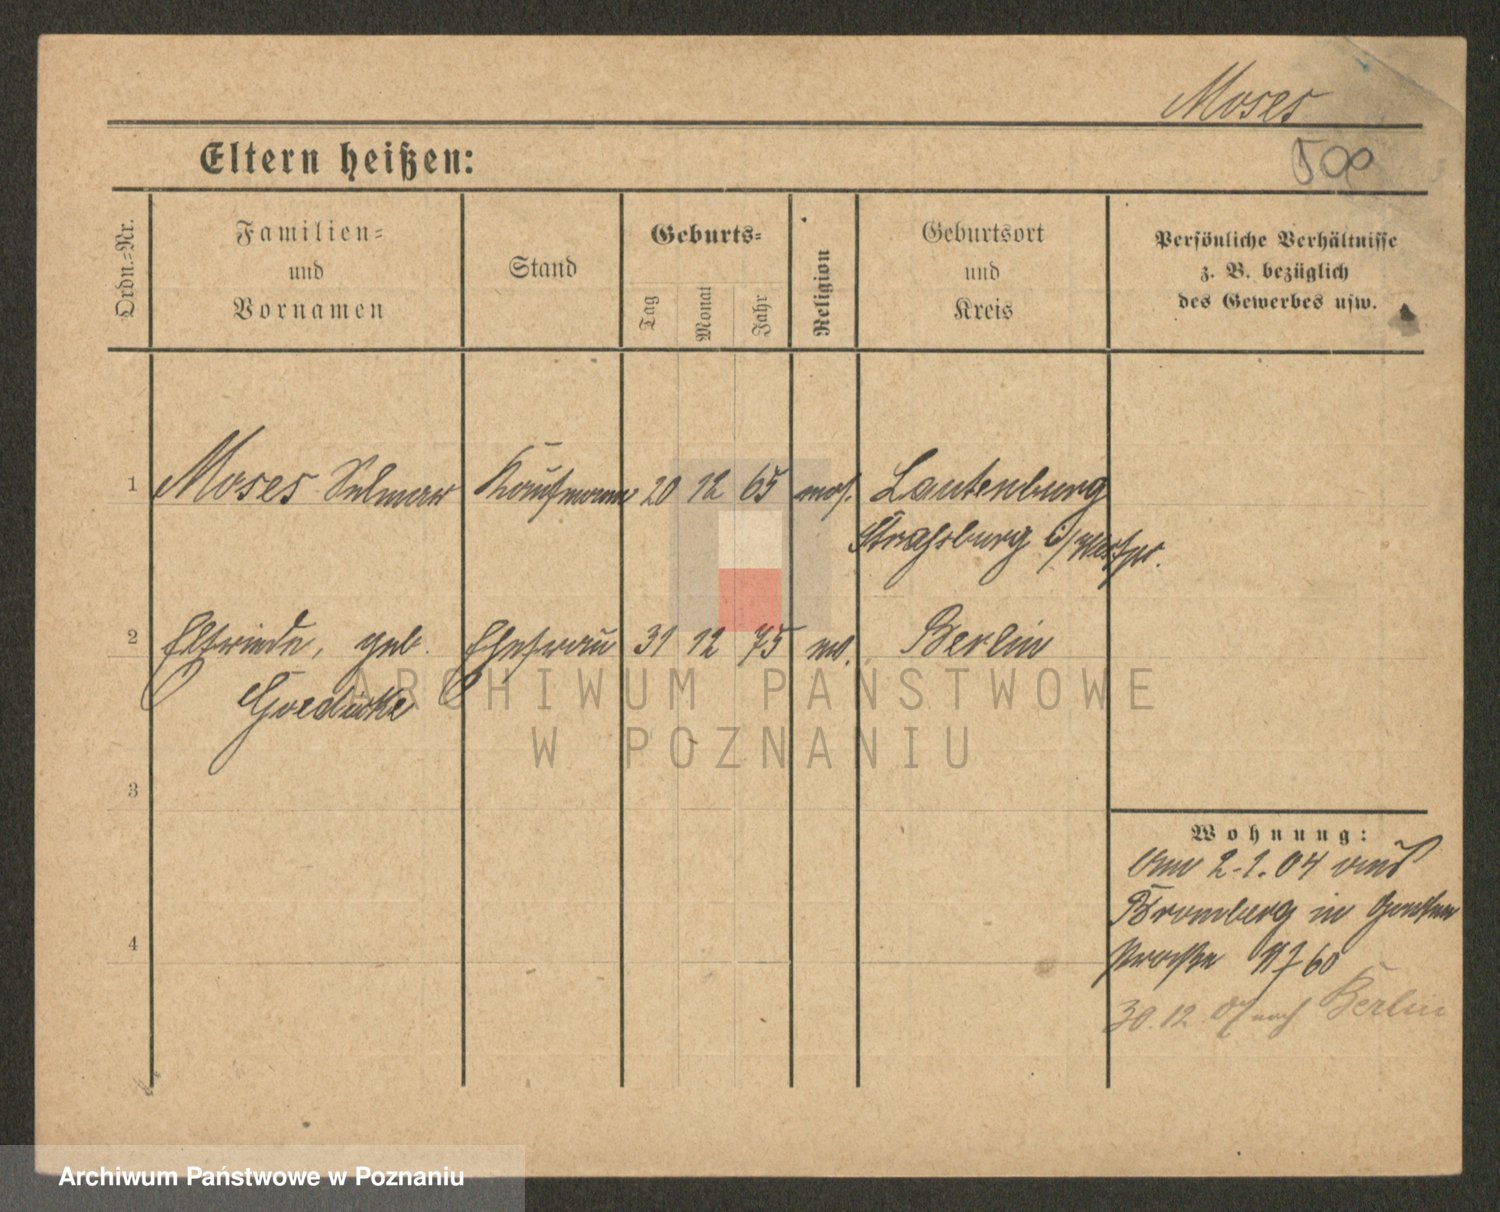 Moses
Eltern heißen:
500
Ordn.-Nr.
Familien-
und
Vornamen
Stand
Geburts-
Tag
Monat
Jahr
Religion
Geburtsort
und
Kreis
Persönliche Verhältnisse
z. B. bezüglich
des Gewerbes usw.
1 Moses Selmar Kaufmann 20 12 65 mos. Lautenburg
Straßburg i/Westpr.
2 Elfriede, geb. Ehefrau 31 12 75 ev. Berlin
Goedicke
3
4
Wohnung:
Am 2.1.04 aus
Bromberg in
60
30.12.07 nach Berlin
ARCHIWUM PAŃSTWOWE
W POZNANIU
Archiwum Państwowe w Poznaniu